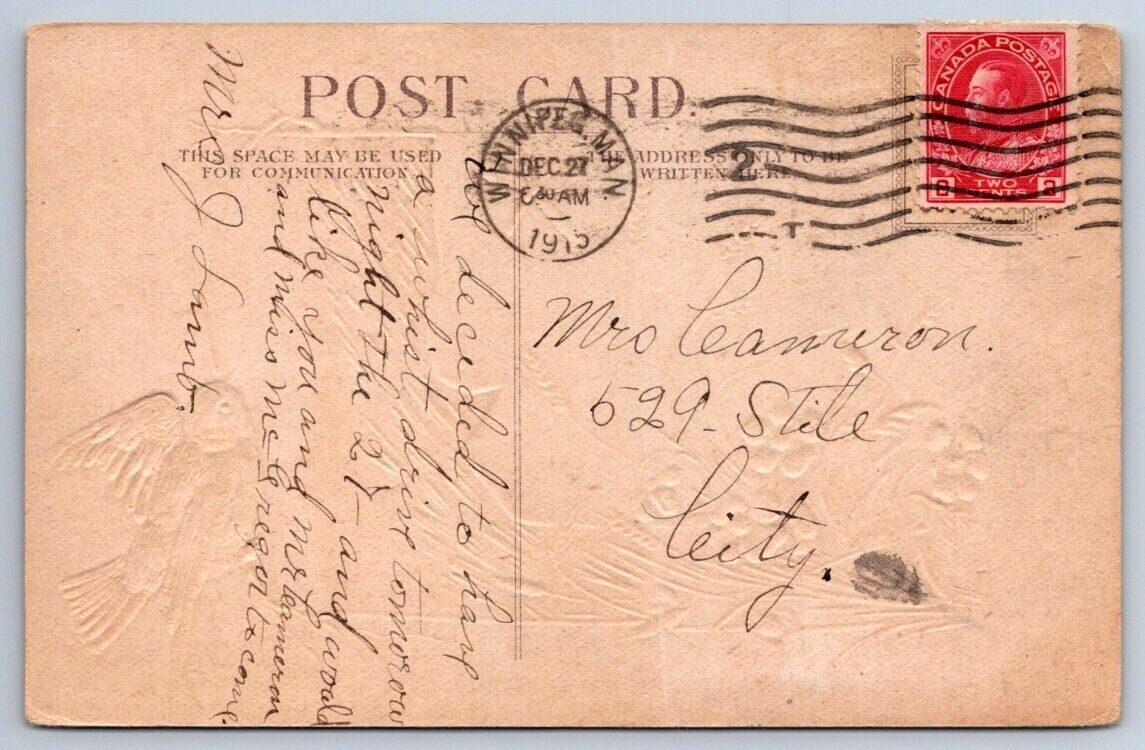 POST CARD.
THIS SPACE MAY BE USED
FOR COMMUNICATION.
THE ADDRESS ONLY TO BE
WRITTEN HERE
WINNIPEG. MAN.
DEC 27
8 30 AM
1915
2
T
CANADA POSTAGE
2 TWO CENTS 2
We decided to have
a whist drive tomorow
night the 27 - and would
like you and Mr Cameron
and Miss McGregor to come
Mrs J Lamb.
Mrs Cameron.
529 - Stile
City.